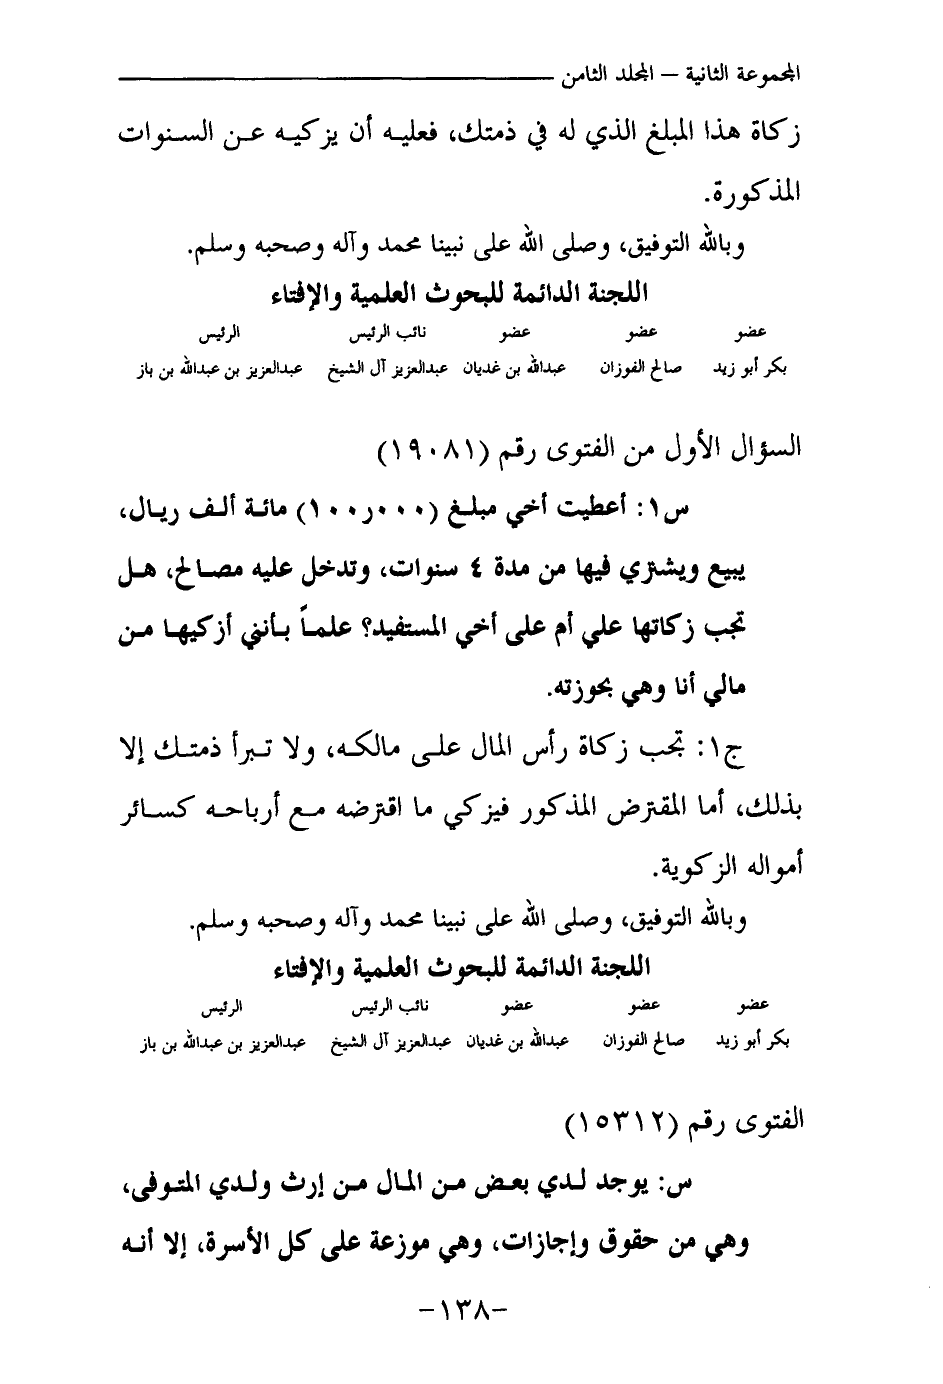 المجموعة الثانية – المجلد الثامن
زكاة هذا المبلغ الذي له في ذمتك، فعليه أن يزكيه عن السنوات
المذكورة.
وبالله التوفيق، وصلى الله على نبينا محمد وآله وصحبه وسلم.
اللجنة الدائمة للبحوث العلمية والإفتاء
عضو عضو عضو نائب الرئيس الرئيس
بكر أبو زيد صالح الفوزان عبدالله بن غديان عبدالعزيز آل الشيخ عبدالعزيز بن عبدالله بن باز
السؤال الأول من الفتوى رقم (١٩٠٨١)
س١: أعطيت أخي مبلغ (١٠٠ر٠٠٠) مائة ألف ريال،
يبيع ويشتري فيها من مدة ٤ سنوات، وتدخل عليه مصالح، هل
تجب زكاتها علي أم على أخي المستفيد؟ علماً بأنني أزكيها من
مالي أنا وهي بحوزته.
ج١: تجب زكاة رأس المال على مالكه، ولا تبرأ ذمتك إلا
بذلك، أما المقترض المذكور فيزكي ما اقترضه مع أرباحه كسائر
أمواله الزكوية.
وبالله التوفيق، وصلى الله على نبينا محمد وآله وصحبه وسلم.
اللجنة الدائمة للبحوث العلمية والإفتاء
عضو عضو عضو نائب الرئيس الرئيس
بكر أبو زيد صالح الفوزان عبدالله بن غديان عبدالعزيز آل الشيخ عبدالعزيز بن عبدالله بن باز
الفتوى رقم (١٥٣١٢)
س: يوجد لدي بعض من المال من إرث ولدي المتوفى،
وهي من حقوق وإجازات، وهي موزعة على كل الأسرة، إلا أنه
-١٣٨-